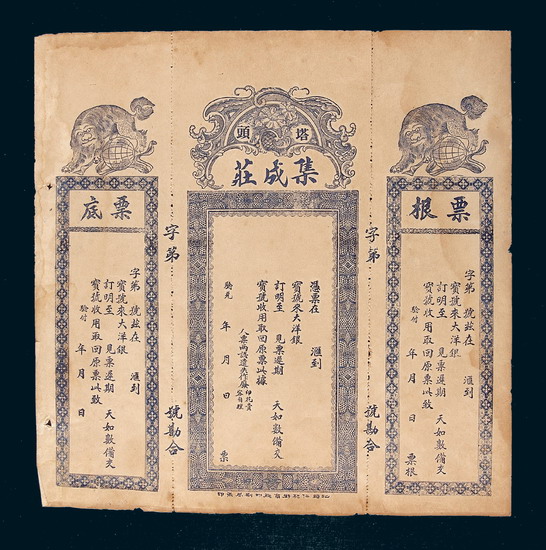 票根
字第 號茲在 滙到
寶號來大洋銀
訂明至 見票遲期 天如數備交
寶號收用取回原票此致
驗付 年 月 日 票根
字第 號勘合
塔頭
集成莊
憑票在 滙到
寶號來大洋銀
訂明至 見票遲期 天如數備交
寶號收用取回原票此據
年 月 日 票
字第 號勘合
票底
字第 號茲在 滙到
寶號來大洋銀
訂明至 見票遲期 天如數備交
寶號收用取回原票此致
驗付 年 月 日